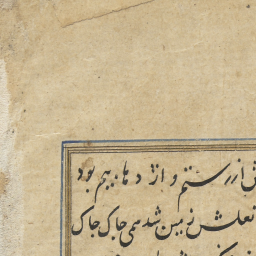 از رستم و اژدها بیم بود
نعلش زمین شد همی چاک چاک